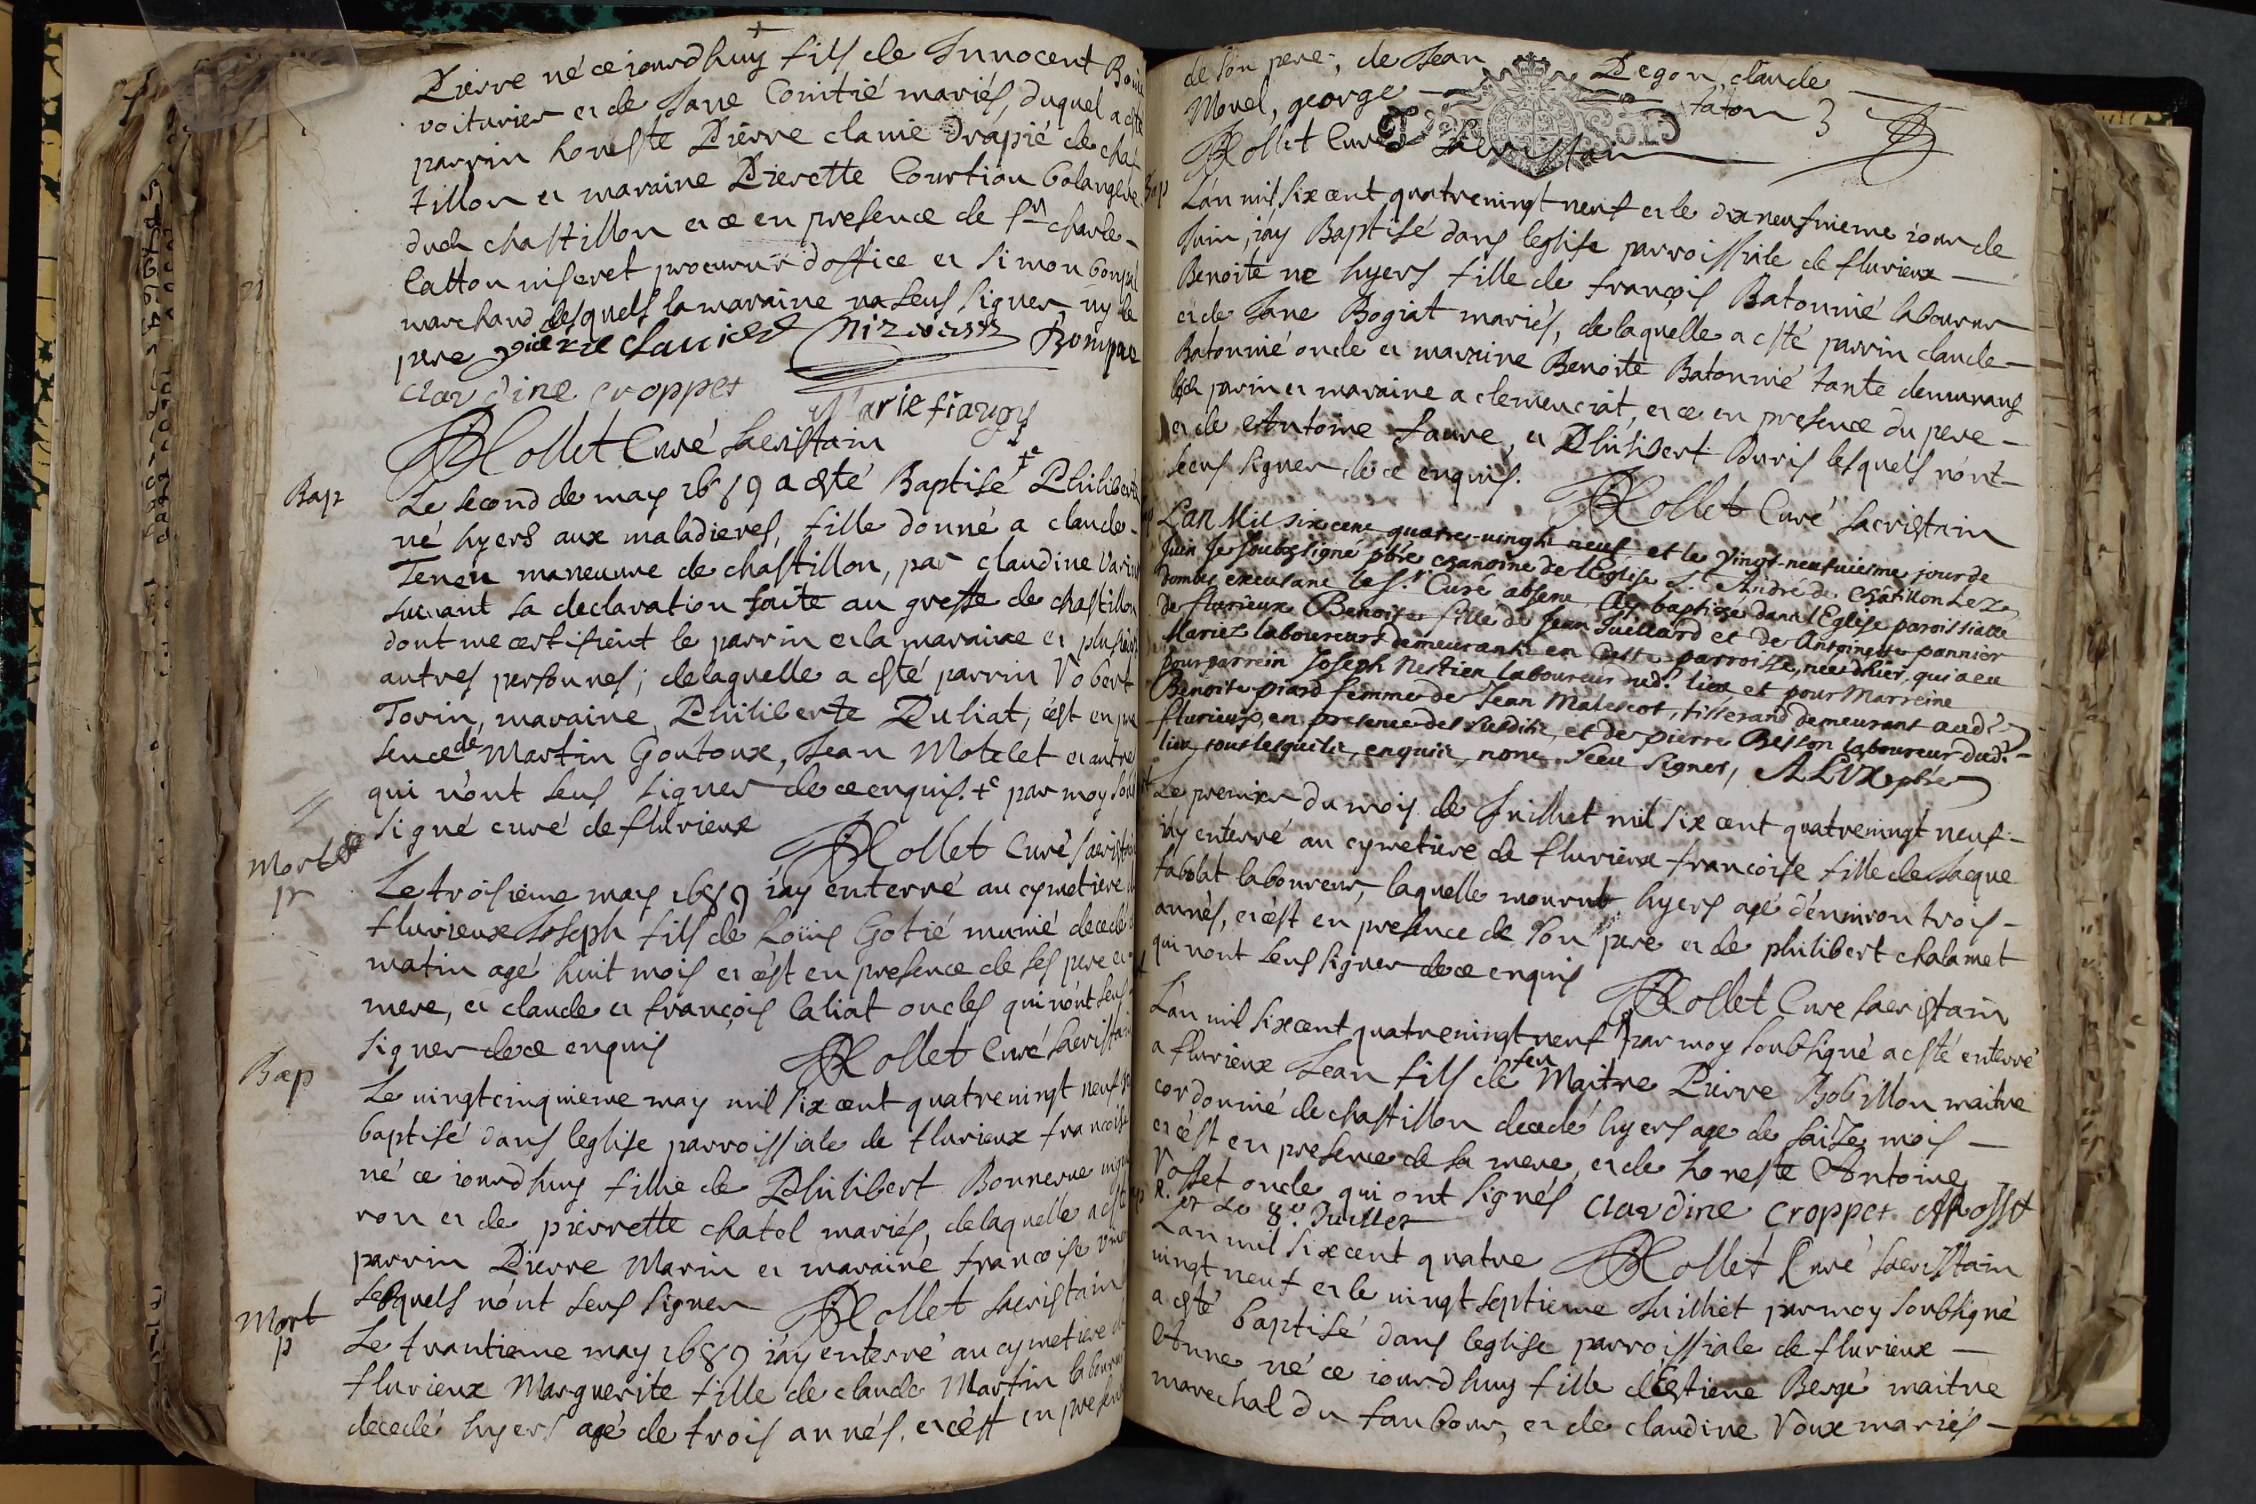 Pierre né ce iourdhuy fils de Innocent
voiturier et de Jane Comtié mariés, duquel a esté
parrin honeste Pierre clamé Drapié de chas
tillon et maraine Pierette Courtiou bolangere
dud chastillon et ce en presence de Sr charle
Catton niseret procureur doffice et Simon
marchand desquels la maraine na seus signer, ny le
pere pierre
claudine croppet
Rollet Curé sacristain
Bap
Le second de may 1689 a esté Baptisé +e Philiberte
né hyers aux maladieres, fille donné a claude
Tenen maneuvre de chastillon, par claudine
suivant sa declaration faite au greffe de chastillon
dont me certifient le parrin et la maraine et plusieurs
autres personnes; delaquelle a esté parrin Vobert
Torin, maraine Philiberte Duliat, cèst en pre
sence de Martin Goutoux, Jean Motelet et autres
qui nònt seus signer de ce enquis. +e par moy soub
signé curé de flurieux
Rollet Curé sacristain
Mort
Le troisieme may 1689 iày enterré au cymetiere
flurieux Joseph fils de Loüis Gotié munié decedé
matin agé huit mois et cèst en presence de ses pere et
mere, et claude et françois Caliat oncles qui nònt seus
signer de ce enquis
Rollet Curé sacristain
Bap
Le vingtcinquieme may mil six cent quatrevingt neuf
baptisé dans leglise parroissiale de flurieux françoise
né ce iourdhuy fillie de Philibert Bonnerue vigne
ron et de pierrette chatel mariés, delaquelle a esté
parrin Pierre Marin et maraine françoise
Lesquels nònt seus signer Rollet sacristain
Mort
Le trantieme may 1689 iày enterré au cymetiere
flurieux Marguerite fille de claude Martin laboureur
decedé hyers agé de trois annés, et cèst en presence
de son pere, de Jean Degon, claude
Morel, george
Rollet Curé sacristain
Bap
Làn mil six cent quatrevingt neuf et le dix neufvieme iour de
Juin, iày Baptisé dans leglise parroissiale de flurieux
Benoite né hyers fille de françois Batonnié laboureur
et de Jane Bogiat mariés, de laquelle a esté parrin claude
Batonnié oncle et maraine Benoite Batonnié tante demurans
lesd parin et maraine a clemenciat, et ce en presence du pere
et de Antoine faure, et Philibert Buris lesquels nònt
seus signer de ce enquis.
Rollet Curé sacristain
L'an Mil six cent quatre-vinght neuf et le vingt-neufuiesme jour de
Juin Je soubsigné pbre chanoine de lEglise St André de Châtillon Lez
Dombes excusant le Sr Curé absent Ay baptizé dans l'Eglise paroissialle
de flurieux Benoiste fille de Jean Juillard et de Antoinette pannier
Mariez laboureurs demeurants en ceste parroisse, née d'hier, qui a eu
pour parrein Joseph Nestien laboureur aud. lieu et pour Marreine
Benoiste piard femme de Jean Malescot, tisserand demeurant aud.
flurieux, en presence des susdits, et de pierre Besson laboureur dud.
lieu, tous lesquels, enquis, n'ont sceu signer, ALUX pbre
Le premier du mois de Juilliet mil six cent quatrevingt neuf
iày enterré au cymetiere de flurieux françoise fille de Jacque
fabolat laboureur, laquelle mourut hyers agé dènviron trois
annés, et cèst en presence de son pere et de philibert chalamet
qui nont seus signer de ce enquis
Rollet Curé sacristain
Làn mil six cent quatrevingt neuf par moy soubsigné a esté enterré
a flurieux Jean fils de feu Maitre Pierre Bobillon maitre
cordonnié de chastillon decedé hyers age de saize mois
et cèst en presence de sa mere, et de honeste Antoine
Rosset oncle qui ont signés claudine croppet ARosset
et Le 8e Juillet
Rollet Curé sacristain
Làn mil six cent quatre
vingt neuf et le vingt septieme Juilliet par moy soubsigné
a esté baptisé dans leglise parroissiale de flurieux
Anne né ce iourdhuy fille d'Estiene Bergé maitre
marechal du faubour, et de claudine Roux mariés